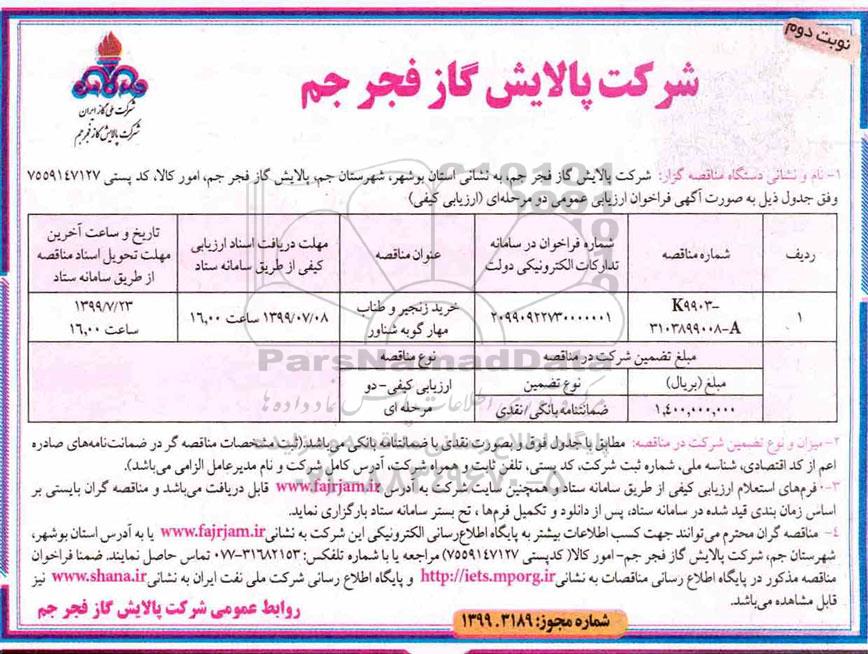 نوبت دوم
شرکت پالایش گاز فجر جم
شرکت ملی گاز ایران
شرکت پالایش گاز فجر جم
۱- نام و نشانی دستگاه مناقصه گزار: شرکت پالایش گاز فجر جم، به نشانی استان بوشهر، شهرستان جم، پالایش گاز فجر جم، امور کالا، کد پستی ۷۵۵۹۱۴۷۱۲۷
وفق جدول ذیل به صورت آگهی فراخوان ارزیابی عمومی دو مرحله‌ای (ارزیابی کیفی)
ردیف
شماره مناقصه
شماره فراخوان در سامانه تدارکات الکترونیکی دولت
عنوان مناقصه
مهلت دریافت اسناد ارزیابی کیفی از طریق سامانه ستاد
تاریخ و ساعت آخرین مهلت تحویل اسناد مناقصه از طریق سامانه ستاد
۱
K۹۹۰۳-
۳۱۰۳۸۹۹۰۰۸-A
۲۰۹۹۰۹۲۲۷۳۰۰۰۰۰۱
خرید زنجیر و طناب مهار گوبه شناور
۱۳۹۹/۰۷/۰۸ ساعت ۱۶,۰۰
۱۳۹۹/۷/۲۳
ساعت ۱۶,۰۰
مبلغ تضمین شرکت در مناقصه
نوع مناقصه
مبلغ (بریال)
نوع تضمین
ارزیابی کیفی- دو مرحله ای
۱,۴۰۰,۰۰۰,۰۰۰
ضمانتنامه بانکی / نقدی
۲- میزان و نوع تضمین شرکت در مناقصه: مطابق با جدول فوق و بصورت نقدی یا ضمانتنامه بانکی می‌باشد.(ثبت مشخصات مناقصه گر در ضمانت‌نامه‌های صادره
اعم از کد اقتصادی، شناسه ملی، شماره ثبت شرکت، کد پستی، تلفن ثابت و همراه شرکت، آدرس کامل شرکت و نام مدیرعامل الزامی می‌باشد).
۳-۰ فرم‌های استعلام ارزیابی کیفی از طریق سامانه ستاد و همچنین سایت شرکت به آدرس www.fajrjam.ir قابل دریافت می‌باشد و مناقصه گران بایستی بر
اساس زمان بندی قید شده در سامانه ستاد، پس از دانلود و تکمیل فرم‌ها ، تح بستر سامانه ستاد بارگزاری نماید.
۴- مناقصه گران محترم می‌توانند جهت کسب اطلاعات بیشتر به پایگاه اطلاع‌رسانی الکترونیکی این شرکت به نشانی www.fajrjam.ir یا به آدرس استان بوشهر،
شهرستان جم، شرکت پالایش گاز فجر جم- امور کالا( کدپستی ۷۵۵۹۱۴۷۱۲۷) مراجعه یا با شماره تلفکس: ۳۱۶۸۲۱۵۳-۰۷۷ تماس حاصل نمایند. ضمنا فراخوان
مناقصه مذکور در پایگاه اطلاع رسانی مناقصات به نشانی http://iets.mporg.ir و پایگاه اطلاع رسانی شرکت ملی نفت ایران به نشانی www.shana.ir نیز
قابل مشاهده می‌باشد.
شماره مجوز: ۱۳۹۹.۳۱۸۹
روابط عمومی شرکت پالایش گاز فجر جم
ParsNamadData